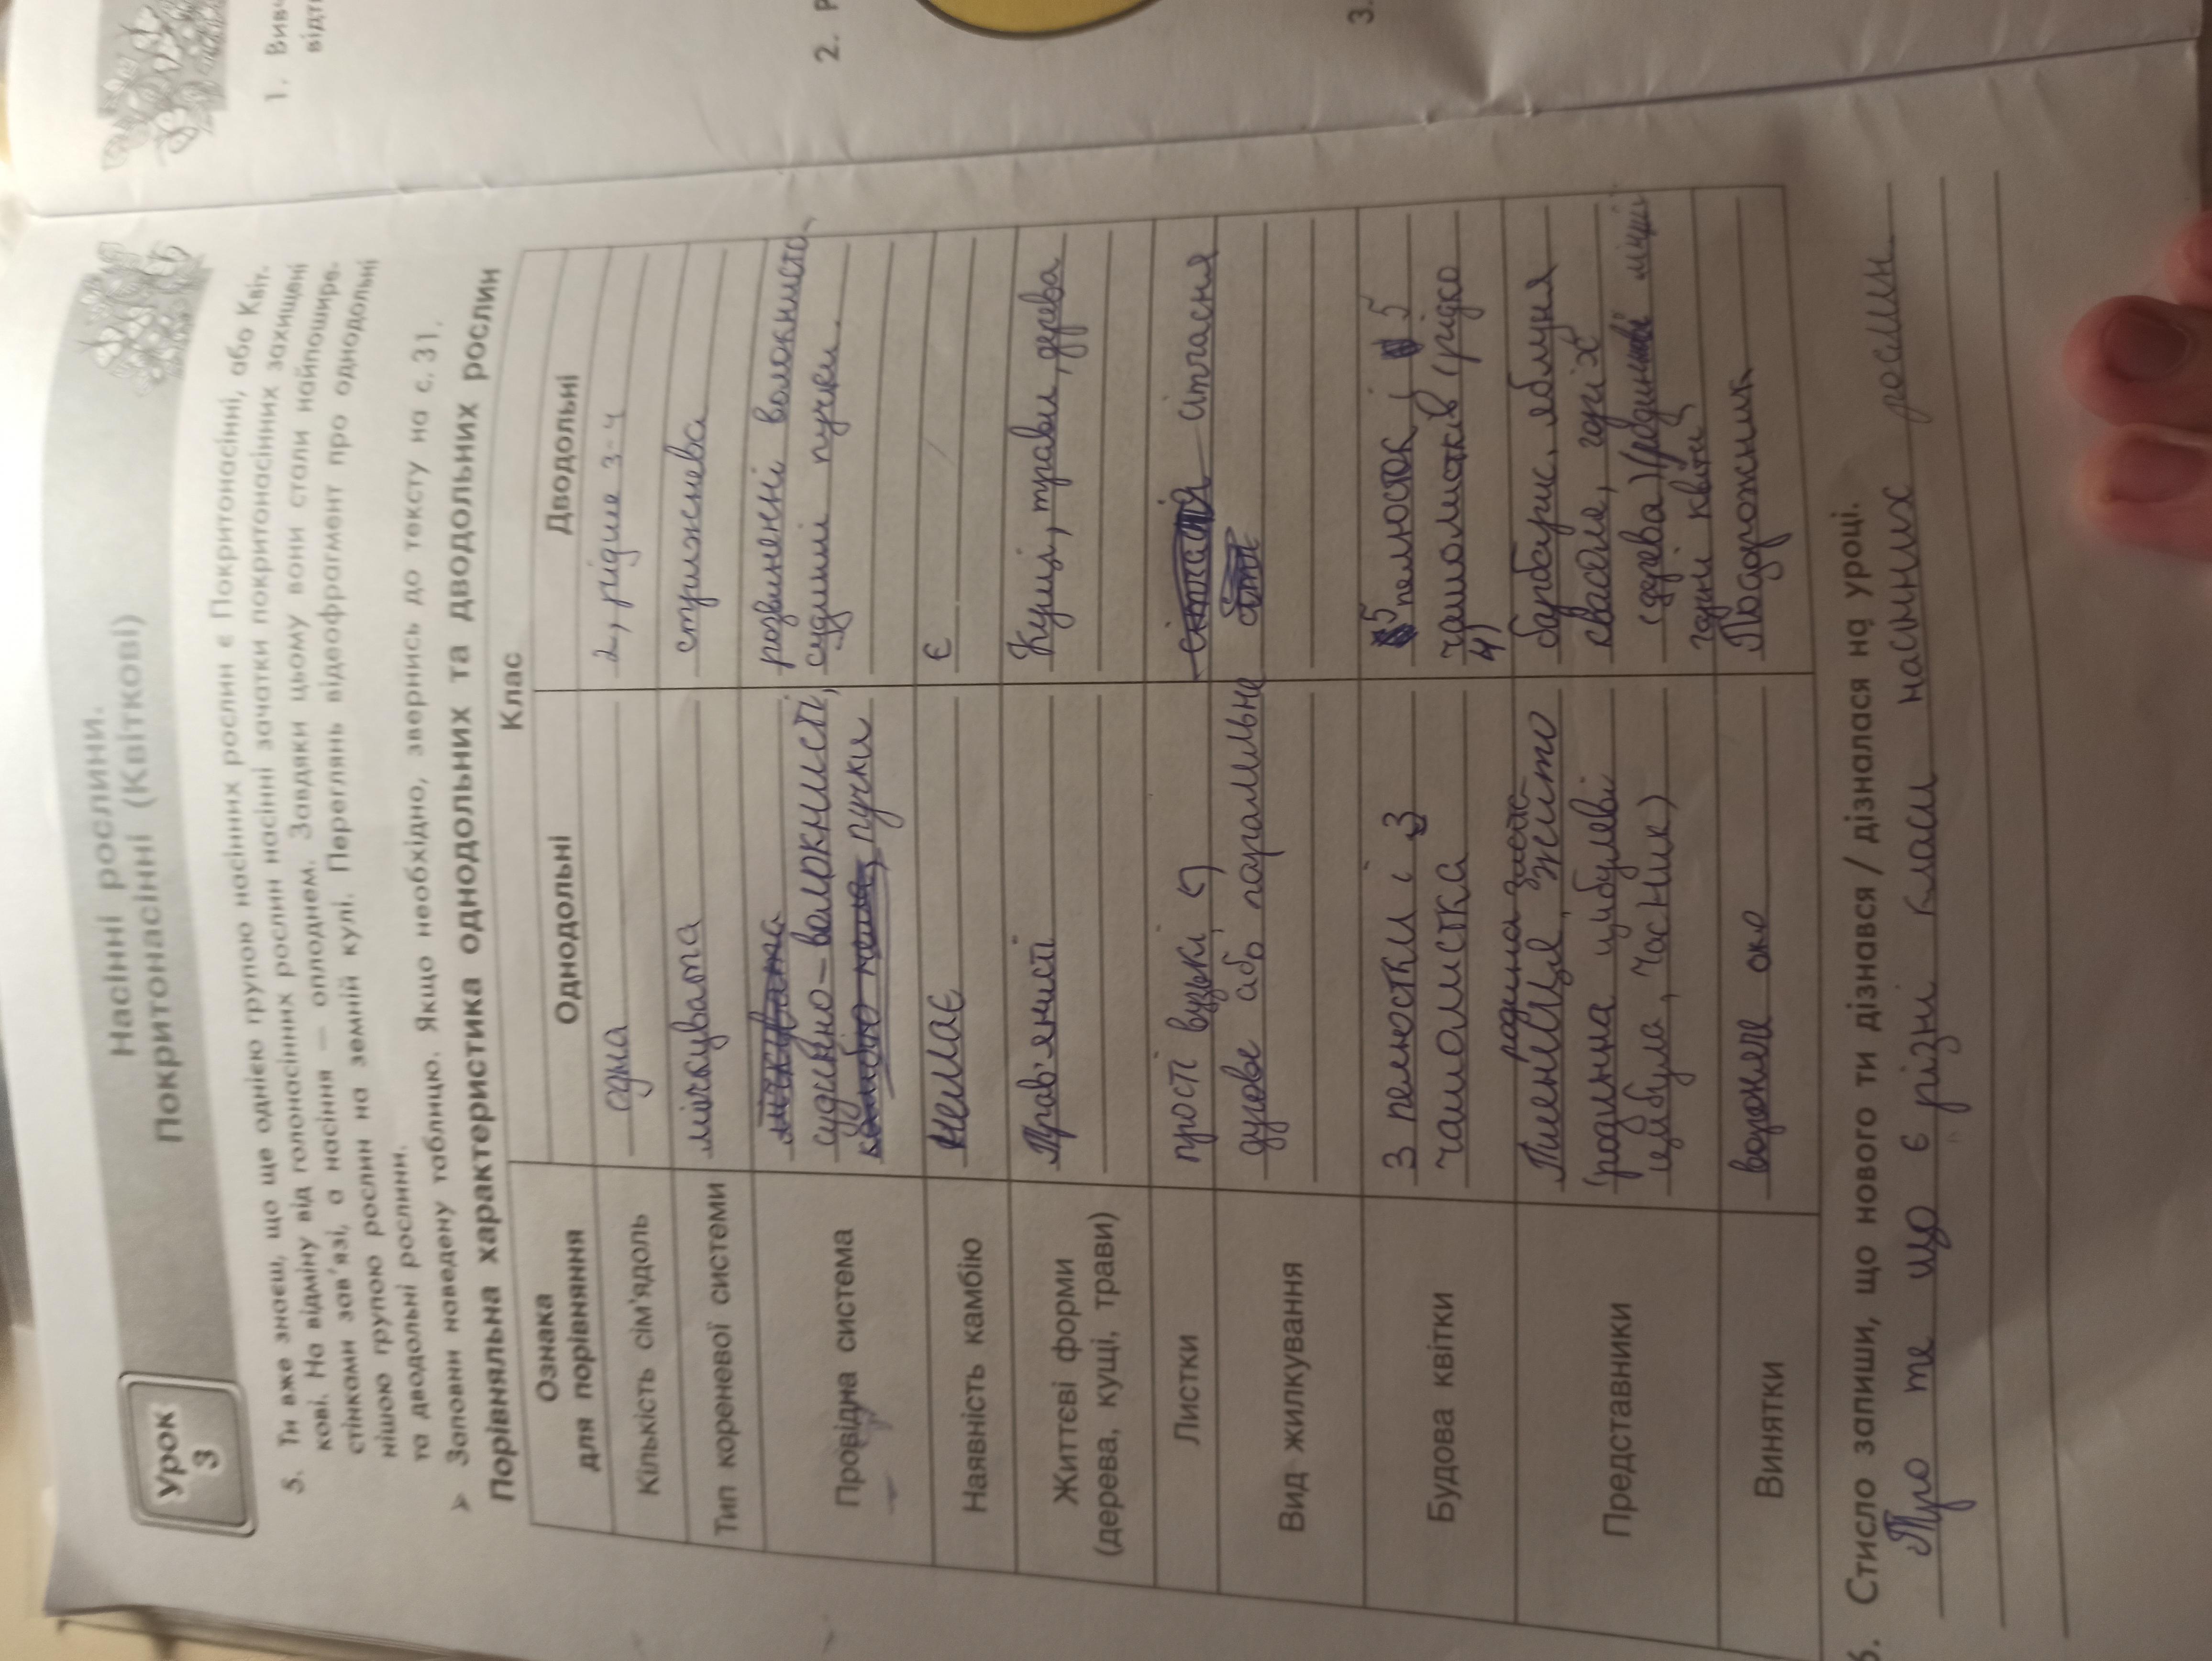 Урок
3
Насінні рослини.
Покритонасінні (Квіткові)
5. Ти вже знаєш, що ще однією групою насінних рослин є Покритонасінні, або Квіт-
кові. На відміну від голонасінних рослин насінні зачатки покритонасінних захищені
стінками зав'язі, а насіння — оплоднем. Завдяки цьому вони стали найпошире-
нішою групою рослин на земній кулі. Переглянь відеофрагмент про однодольні
та дводольні рослини.
➤ Заповни наведену таблицю. Якщо необхідно, звернись до тексту на с. 31.
Порівняльна характеристика однодольних та дводольних рослин
Ознака
для порівняння
Клас
Однодольні
Дводольні
Кількість сім'ядоль
одна
2, рідше 3-4
Тип кореневої системи
мичкувата
стрижнева
Провідна система
судинно-волокнисті,
пучки
розвинені волокнисто-
судинні пучки.
Наявність камбію
Немає
є
Життєві форми
(дерева, кущі, трави)
Трав'янисті
Кущі, трави, дерева
Листки
прості вузькі
сітчасня
Вид жилкування
дугове або паралельне
Будова квітки
3 пелюстки і 3
чашолистка
5 пелюсток і 5
чашолистків (рідко
4)
Представники
родина
Пшениця, жито
(родина цибулеві
цибула, часник)
барбарис, яблуня
квасоля, горіх
(дерева)
квіти
Винятки
вороняче око
Подорожник
6. Стисло запиши, що нового ти дізнався / дізналася на уроці.
Про те що є різні класи насінних рослин.
1. Вивч
відп
2. Р
3.